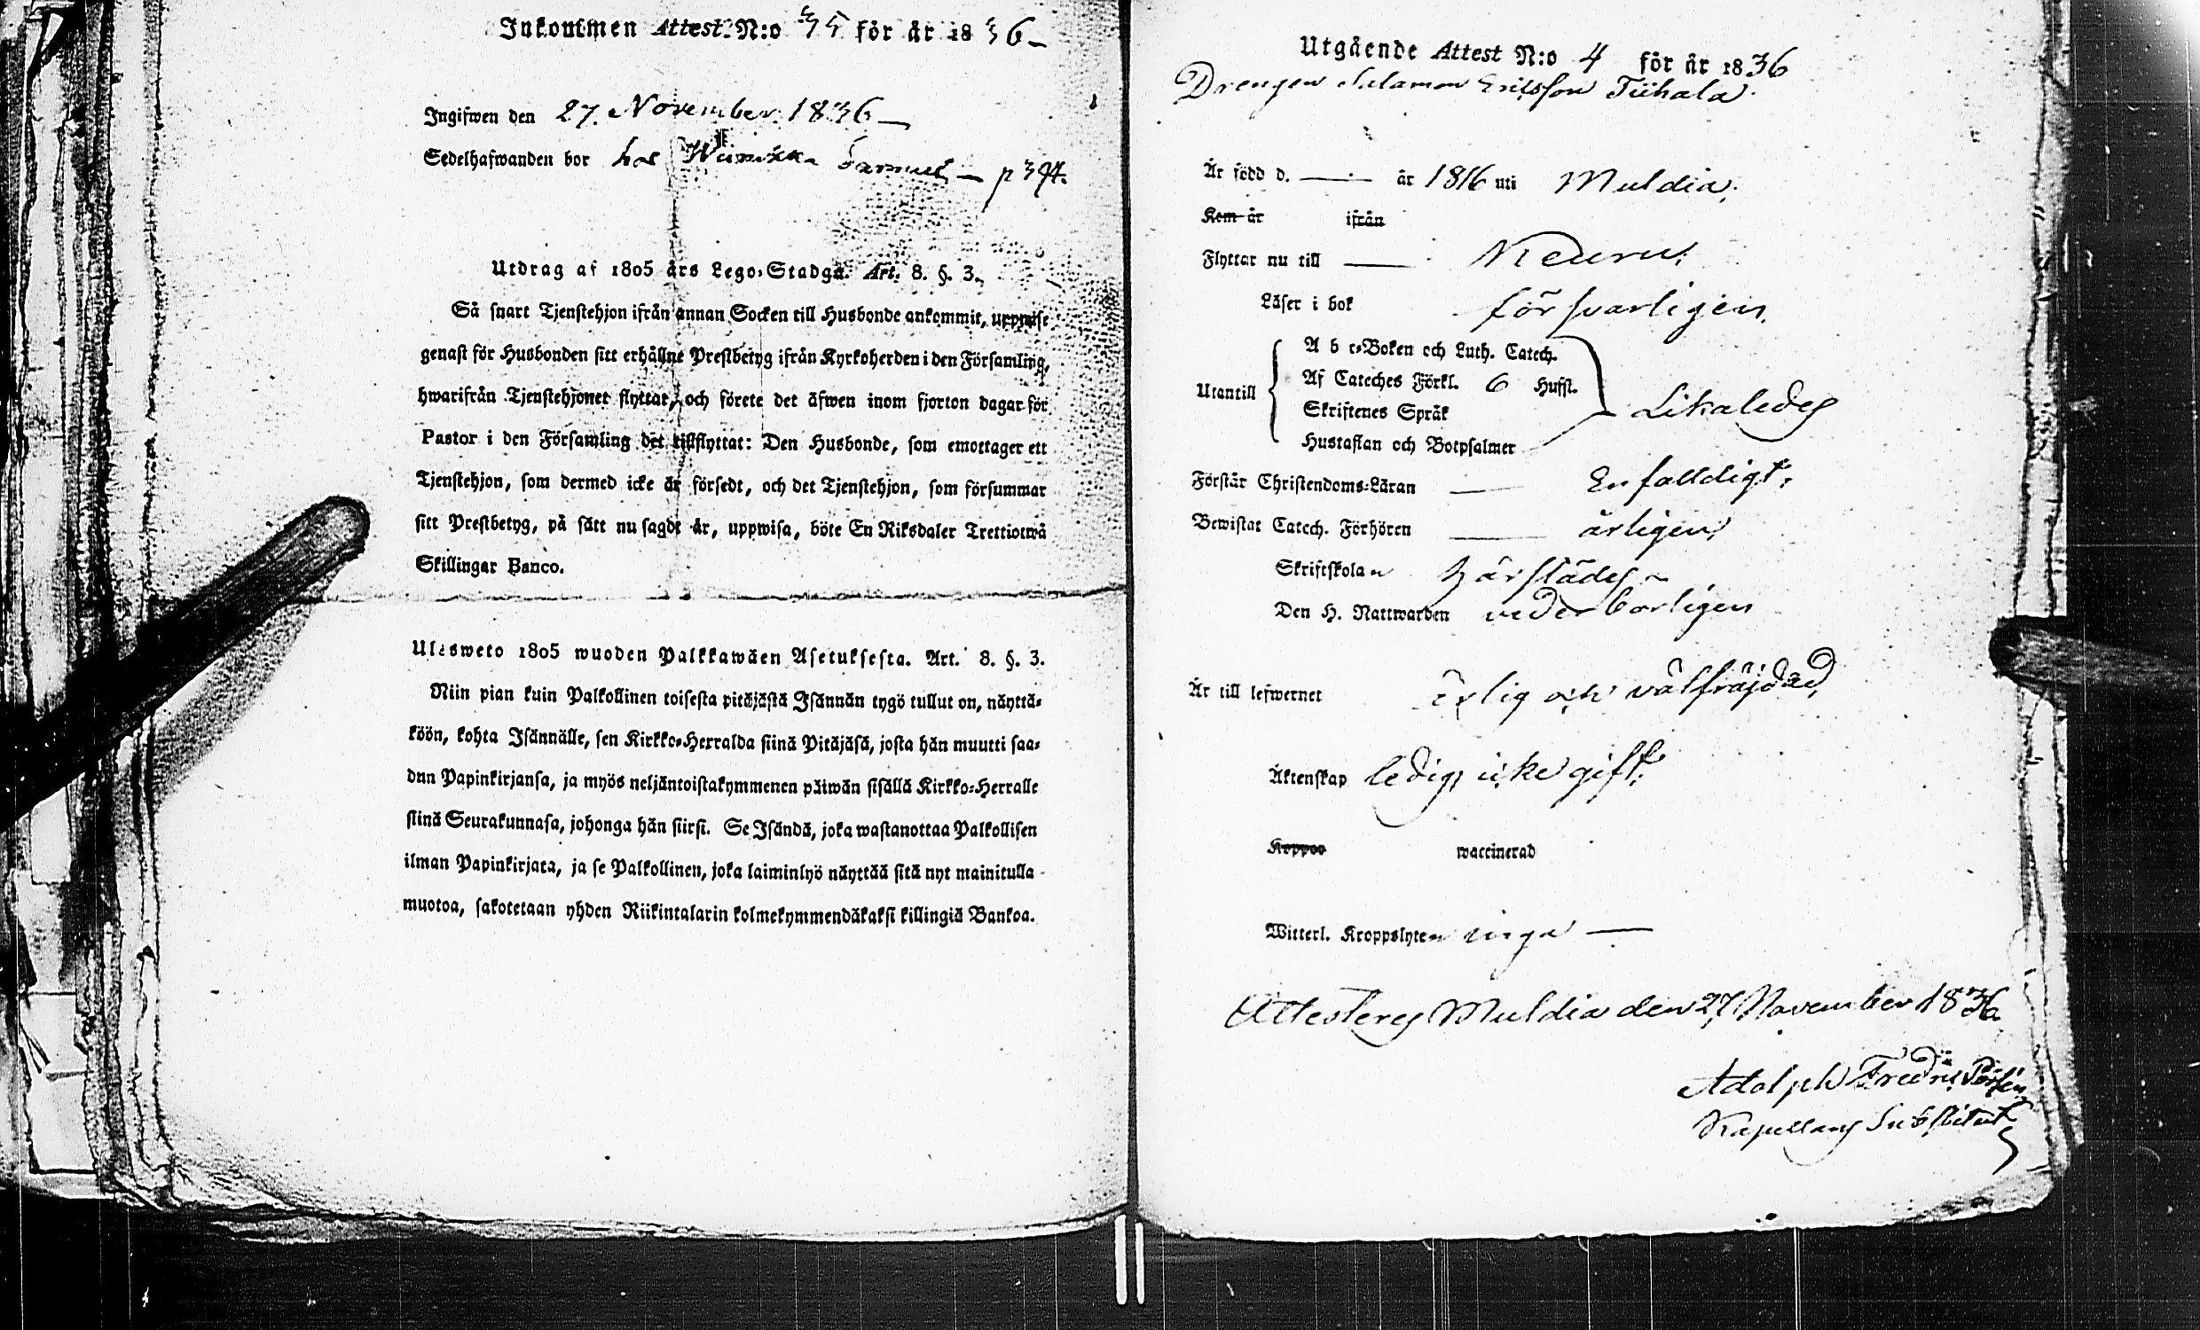 Inkommen Attest N:o för år 1836
Ingifwen den 27. November 1836
Sedelhafwanden bor hos Samuel p 394.
Utdrag af 1805 års Lego-Stadga. Art. 8. §. 3.
Så snart Tjenstehjon ifrån annan Socken till Husbonde ankommit, uppwise
genast för Husbonden sitt erhållne Prestbetyg ifrån Kyrkoherden i den Församling,
hwarifrån Tjenstehjonet flyttat, och förete det äfwen inom fjorton dagar för
Pastor i den Församling det tillflyttat: Den Husbonde, som emottager ett
Tjenstehjon, som dermed icke är försedt, och det Tjenstehjon, som försummar
sitt Prestbetyg, på sätt nu sagdt är, uppwisa, böte En Riksdaler Trettiotwå
Skillingar Banco.
Ulosweto 1805 wuoden Palkkawäen Asetuksesta. Art. 8. §. 3.
Niin pian kuin Palkollinen toisesta pitäjästä Isännän tygö tullut on, näyttä-
köön, kohta Isännälle, sen Kirkko-Herralda siinä Pitäjäsä, josta hän muutti saa-
dun Papinkirjansa, ja myös neljäntoistakymmenen päiwän sisällä Kirkko-Herralle
siinä Seurakunnasa, johonga hän siirsi. Se Isändä, joka wastanottaa Palkollisen
ilman Papinkirjata, ja se Palkollinen, joka laiminlyö näyttää sitä nyt mainitulla
muotoa, sakotetaan yhden Riikintalarin kolmekymmendäkaksi killingiä Bankoa.
Utgående Attest N:o 4 för år 1836
Drengen Salamon Ericsson Tiihala
Är född d. — år 1816 uti Muldia.
Kom år ifrån
Flyttar nu till — Keuru.
Läser i bok försvarligen
A b c-Boken och Luth. Catech.
Utantill Af Cateches Förkl. 6 Hufst. Likaledes
Skriftenes Språk
Hustaflan och Botpsalmer
Förstår Christendoms-Läran — Enfalldigt.
Bewistat Catech. Förhören — årligen
Skriftskolan härstädes
Den H. Nattwarden vederborligen
Är till lefwernet ärlig och välfräjdad
Äktenskap ledig, icke gift.
Koppor waccinerad
Witterl. Kroppslyten inga —
Attesteras Muldia den 27 November 1836
Adolph Fredric
Kapellans Substitut